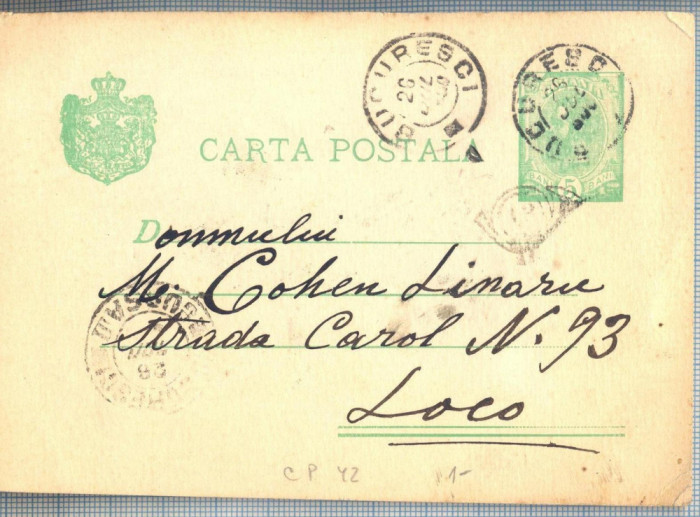 BUCURESCI
26
BUCURESCI
26
CARTA POSTALA
BANI 5 BANI
Dommului
M. Cohen Linaru
Strada Carol N. 93
Loco
26
CP 42 1-